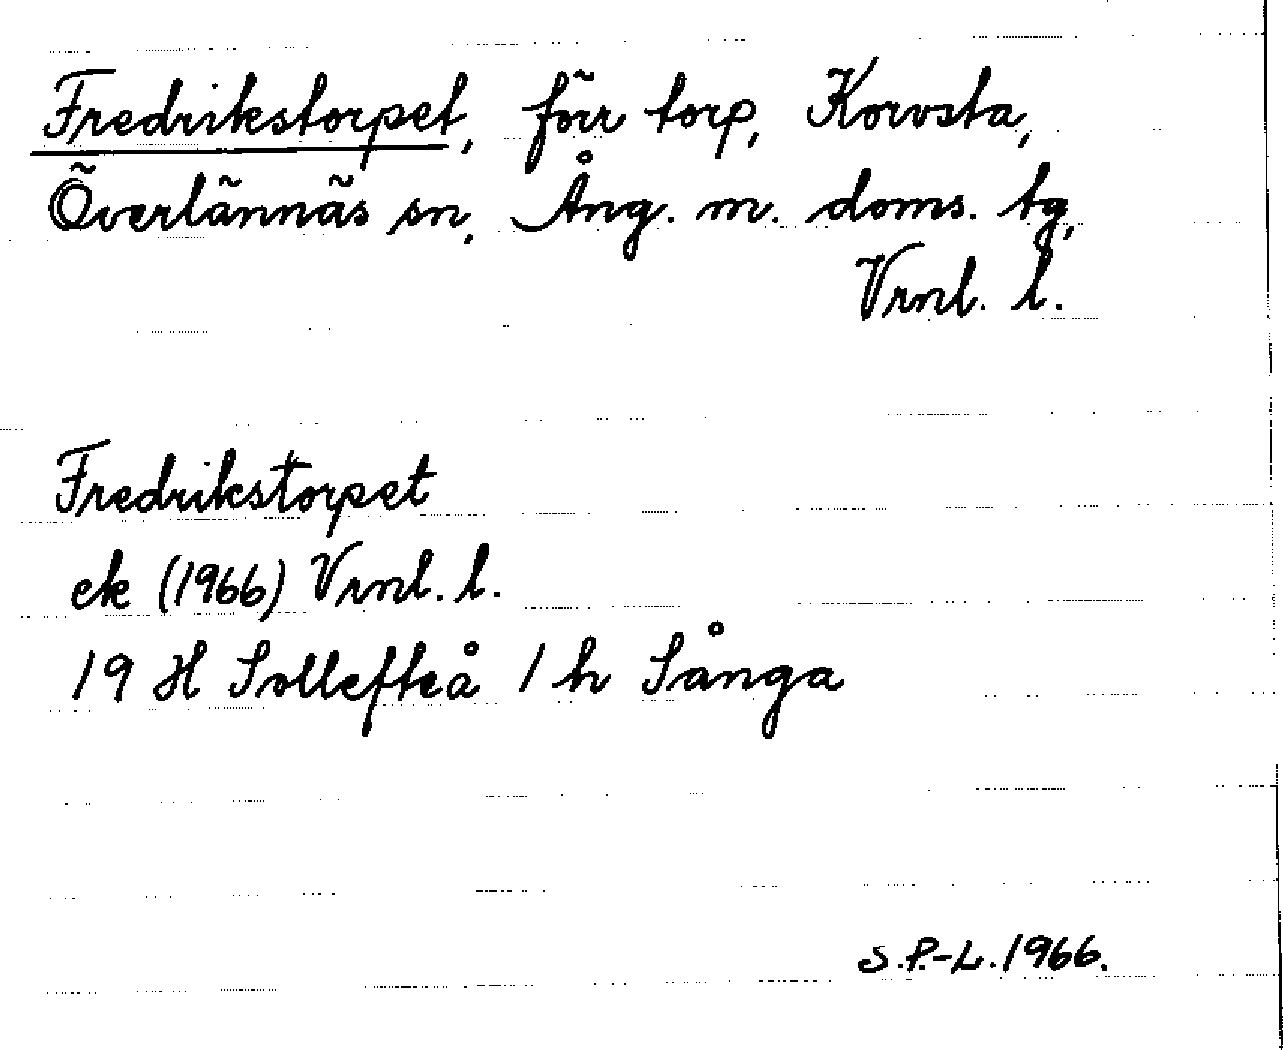 Fredrikstorpet, förr torp, Korvsta,
Överlännäs sn, Ång. m. doms. tg,
Vrnl. l.
Fredrikstorpet
ek (1966) Vrnl. l.
19 H Sollefteå 1 h Sånga
S.P.-L. 1966.